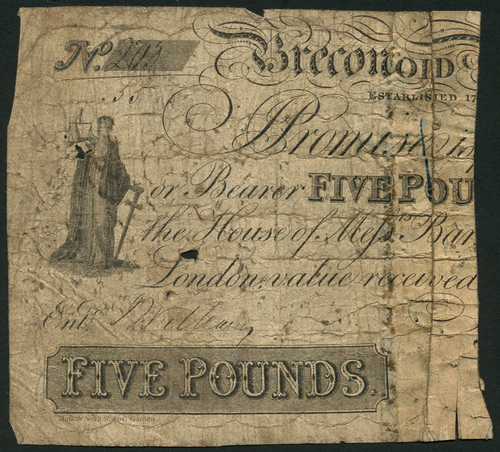 No. 2713 Brecon OLD
ESTABLISHED 17
Promise
or Bearer FIVE POU
the House of Messrs Bar
London, value received
Entd
FIVE POUNDS.